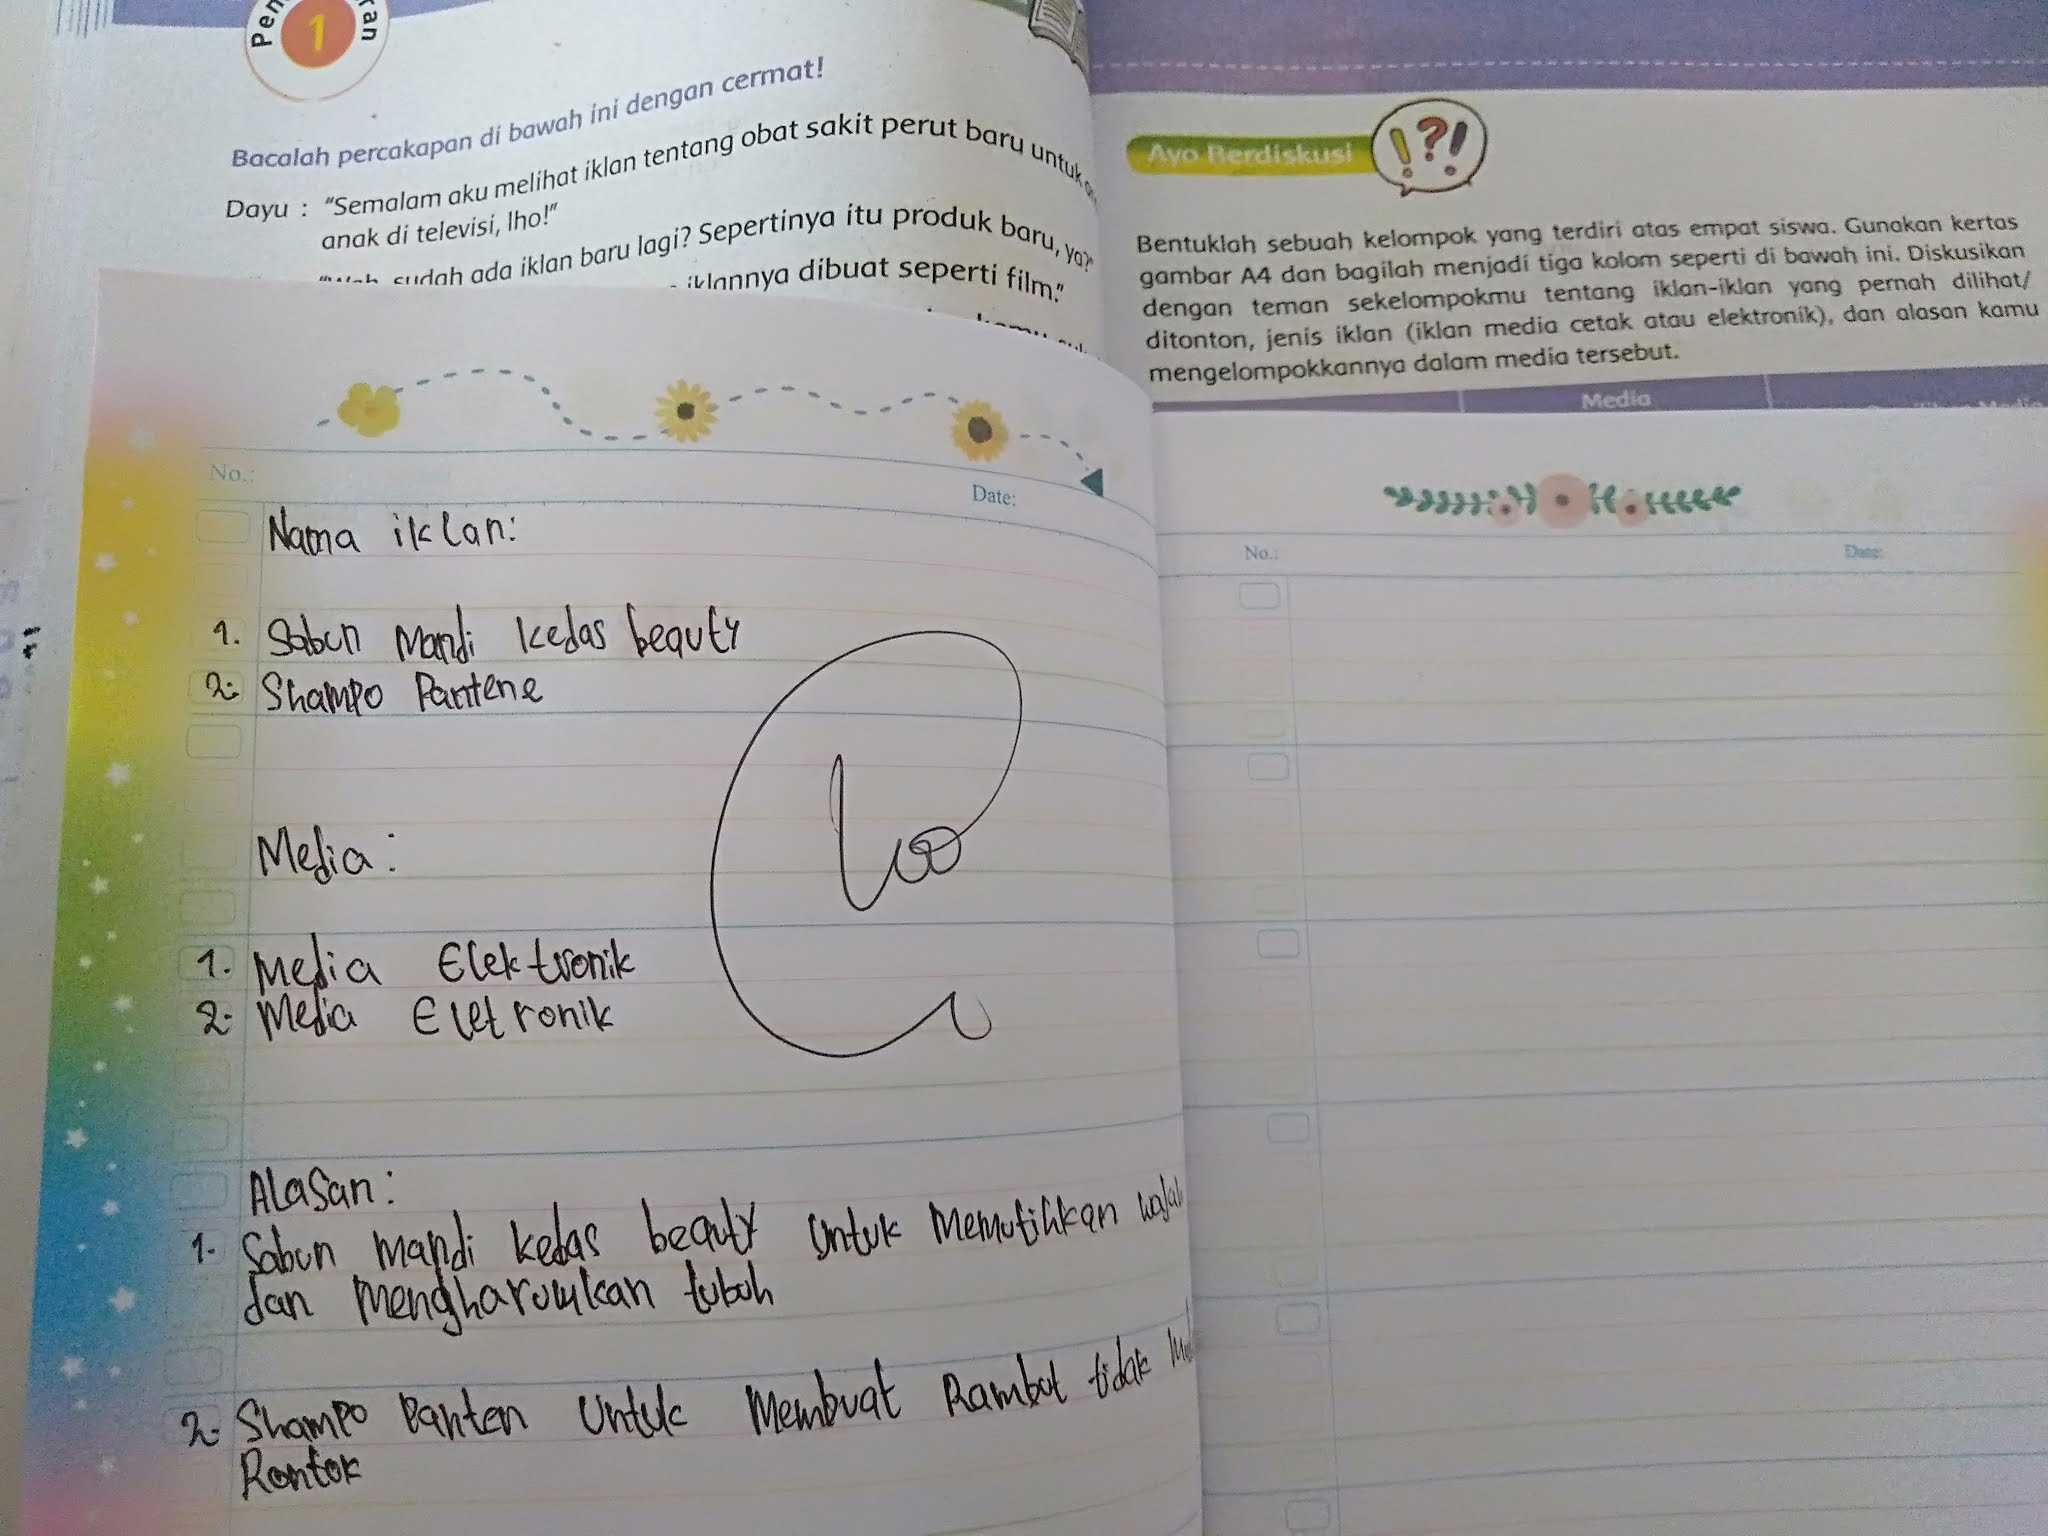 1
Bacalah percakapan di bawah ini dengan cermat!
Dayu : “Semalam aku melihat iklan tentang obat sakit perut baru untuk
anak di televisi, lho!”
sudah ada iklan baru lagi? Sepertinya itu produk baru, ya?
iklannya dibuat seperti film.”
No.:
Date:
Nama iklan:
1. Sabun Mandi kedas beauty
2. Shampo Pantene
Media:
100
1. Media Elektronik
2. Media Eletronik
Alasan:
1. Sabun mandi kedas beauty Untuk Memutihkan wajah
dan Mengharumkan tubuh
2. Shampo Panten Untuk Membuat Rambut tidak
Rontok
Ayo Berdiskusi
!?!
Bentuklah sebuah kelompok yang terdiri atas empat siswa. Gunakan kertas
gambar A4 dan bagilah menjadi tiga kolom seperti di bawah ini. Diskusikan
dengan teman sekelompokmu tentang iklan-iklan yang pernah dilihat/
ditonton, jenis iklan (iklan media cetak atau elektronik), dan alasan kamu
mengelompokkannya dalam media tersebut.
Media
No.:
Date: